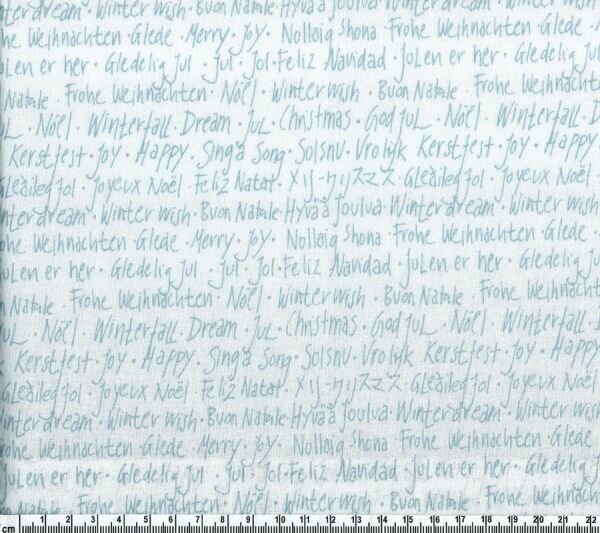 nterdream · Winter wish · Buon Natale · Hyvää Joulua · Winterdream · Winter wish
ne Weihnachten Glede · Merry · Joy · Nollaig Shona · Frohe Weihnachten · Glede
Julen er her · Gledelig Jul · Jul · Jol · Feliz Navidad · Julen er her · Gledelig J
Natale · Frohe Weihnachten · Nöel · Winter wish · Buon Natale · Frohe Weihnacht
UL · Nöel · Winterfall · Dream · JuL · Christmas · God JuL · Nöel · Winterfall · D
Kerstfest · Joy · Happy · Sing a Song · Solsnu · Vrolijk Kerstfest · Joy · Happy
Gleåiled Jol · Joyeux Noël · Feliz Natat · メリ・クリスマス · Gleåiled Jol · Joyeux Noël ·
nterdream · Winter wish · Buon Natale · Hyvää Joulua · Winterdream · Winter wish
ohe Weihnachten Glede · Merry · Joy · Nollaig Shona · Frohe Weihnachten · Glede
JuLen er her · Gledelig Jul · Jul · Jol · Feliz Navidad · JuLen er her · Gledelig J
Natale · Frohe Weihnachten · Nöel · Winter wish · Buon Natale · Frohe Weihnacht
UL · Nöel · Winterfall · Dream · JuL · Christmas · God JuL · Nöel · Winterfall
Kerstfest · Joy · Happy · Sing a Song · Solsnu · Vrolijk Kerstfest · Joy · Happy
Gleåiled Jol · Joyeux Noël · Feliz Natat · メリ・クリスマス · Gleåiled Jol · Joyeux Noël
interdream · Winter wish · Buon Natale · Hyvää Joulua · Winterdream · Winter wish
rohe Weihnachten Glede · Merry · Joy · Nollaig Shona · Frohe Weihnachten · Glede
JuLen er her · Gledelig Jul · Jul · Jol · Feliz Navidad · JuLen er her · Gledelig J
Natale · Frohe Weihnachten · Nöel · Winter wish · Buon Natale · Frohe Weihnacht
cm 1 2 3 4 5 6 7 8 9 10 11 12 13 14 15 16 17 18 19 20 21 22